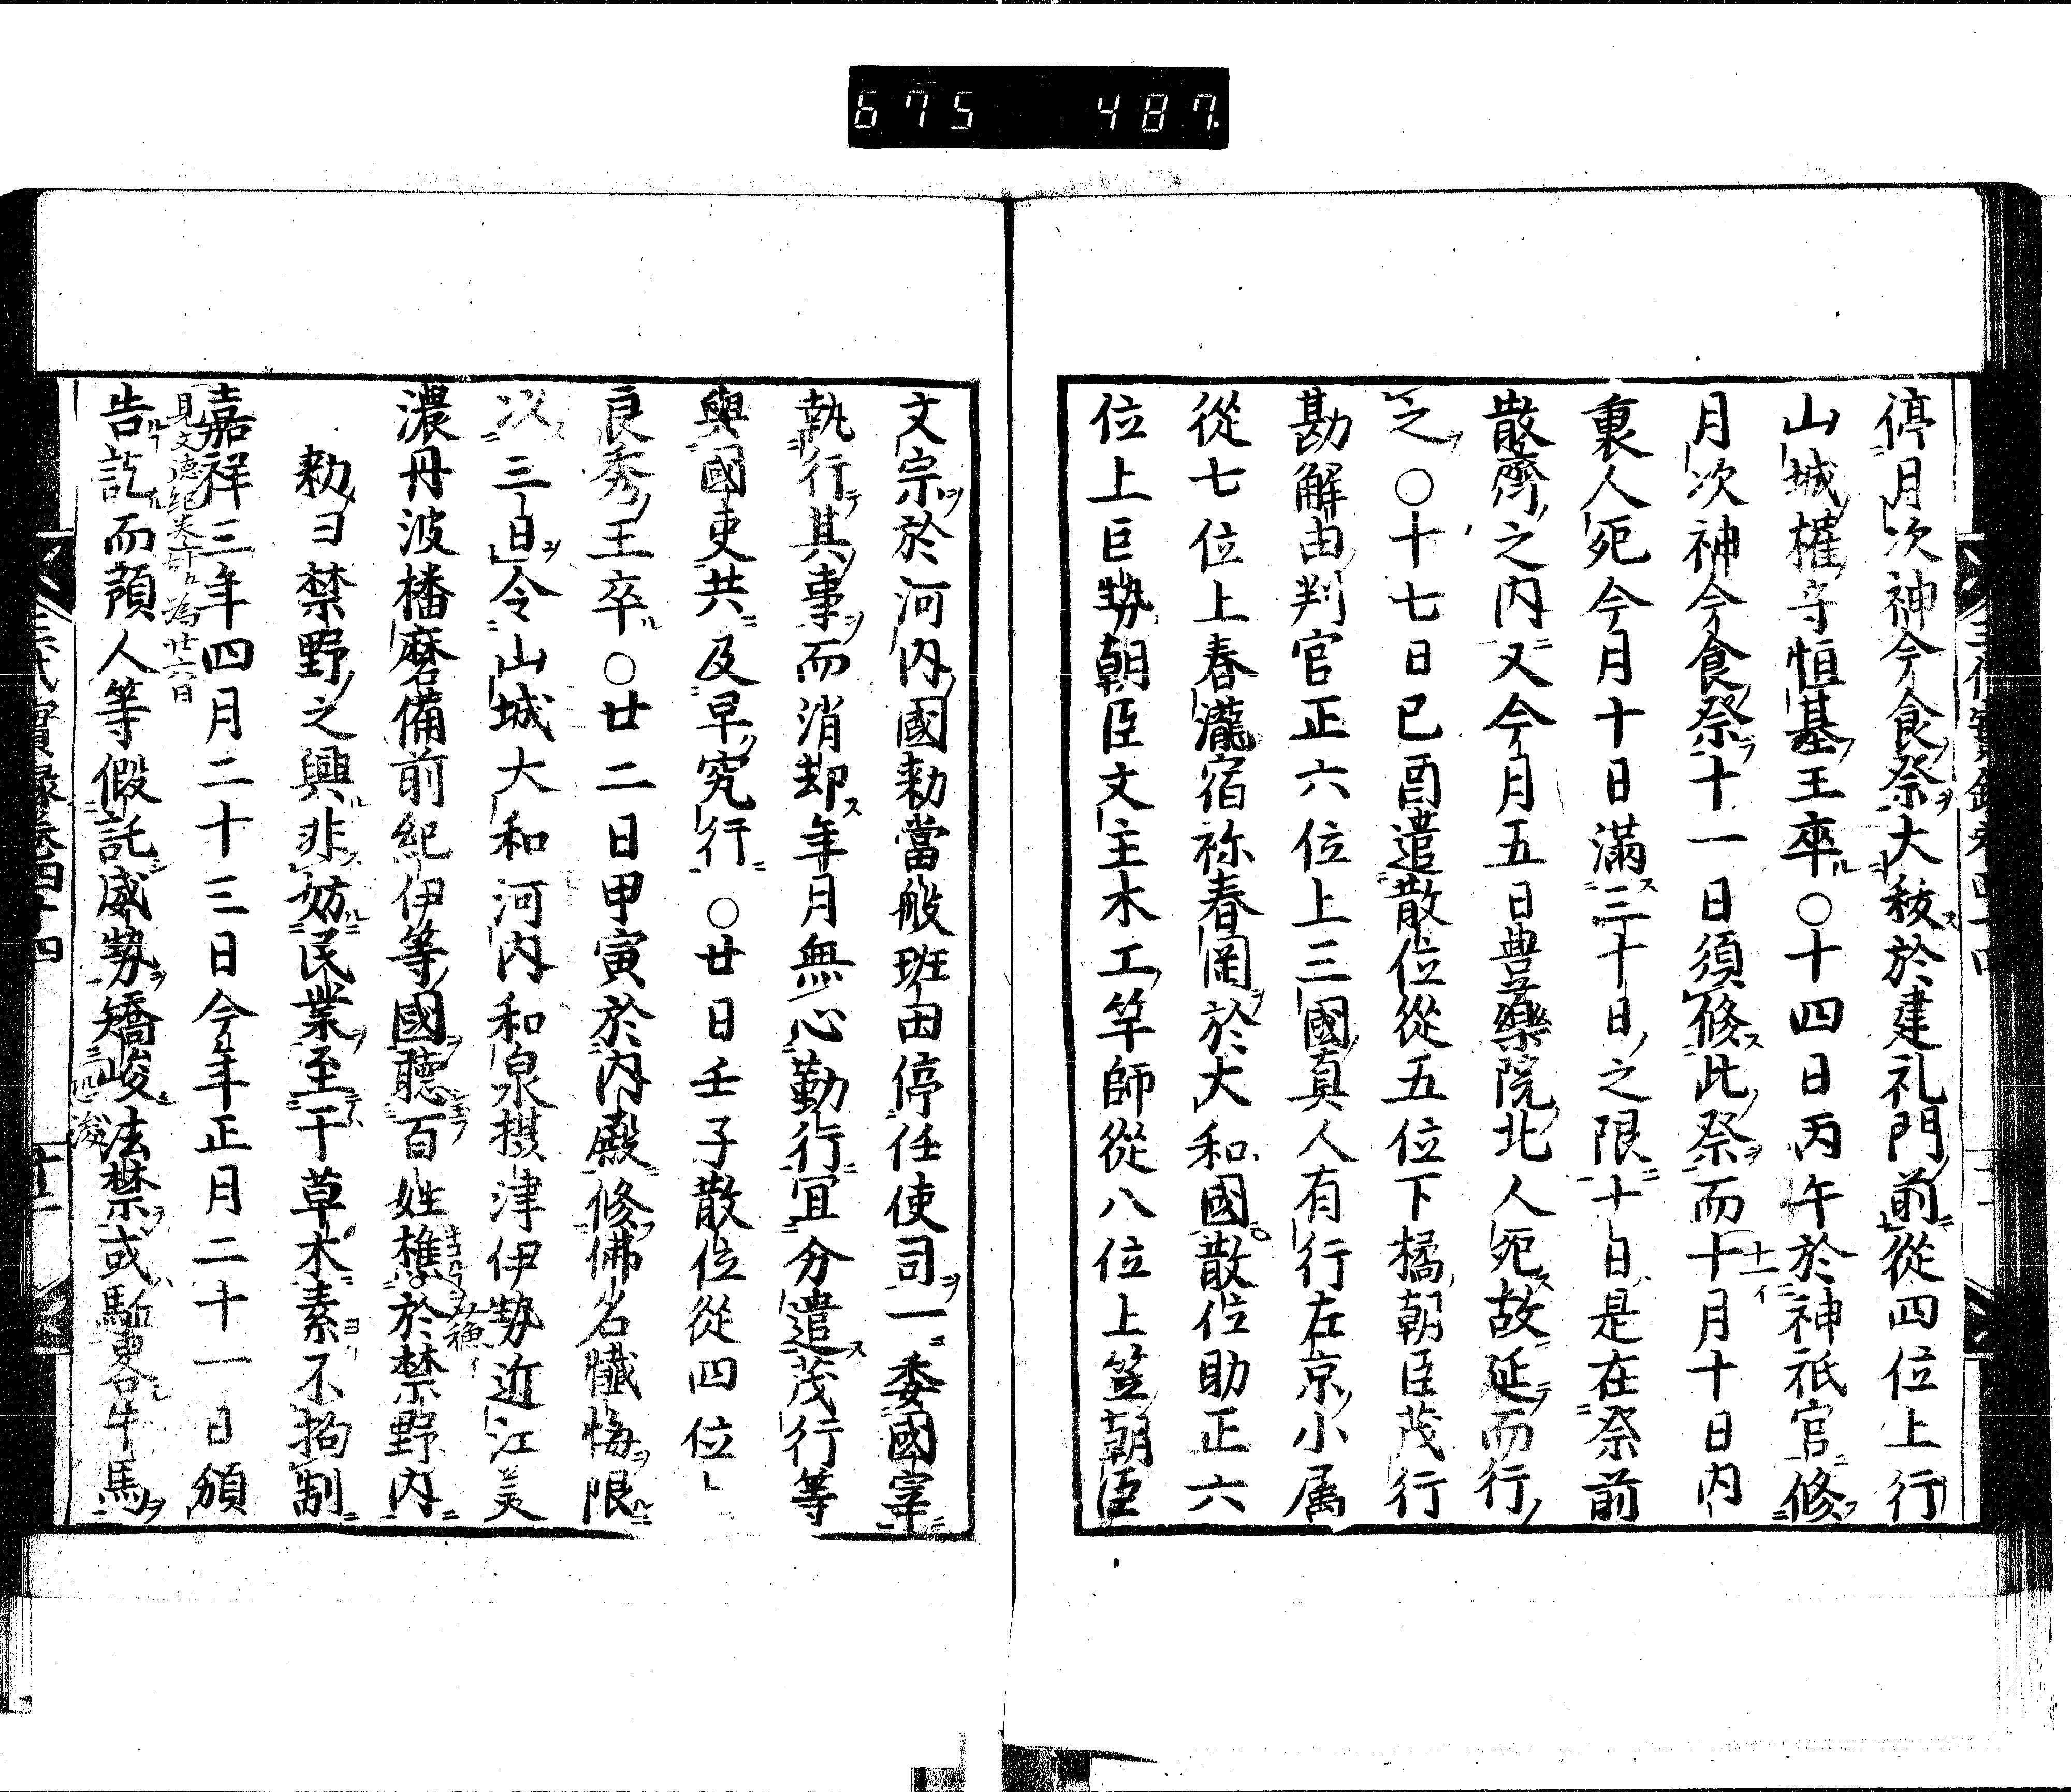 675 487
停月次神今食祭大秡於建礼門前從四位上行
山城權守恒基王卒○十四日丙午於神祇官修
月次神今食祭十一日須修此祭而十月十日内
十一イ
裏人死今月十日滿三十日之限十日是在祭前
散齋之内又今月五日豊藥院北人死故延而行
之○十七日已酉遣散位從五位下橘朝臣茂行
勘解由判官正六位上三國真人有行左京小属
從七位上春瀧宿祢春岡於大和國散位助正六
位上巨勢朝臣文主木工竿師從八位上笠朝臣
文宗於河内國勑當般班田停任使司一委國宰
執行其事而消却年月無心勤行宜分遣茂行等
與國吏共及早究行○廿日壬子散位從四位上
良秀王卒○廿二日甲寅於内殿修佛名懺悔限
以三日令山城大和河内和泉摂津伊勢近江美
濃丹波播磨備前紀伊等國聽百姓樵於禁野内
漁イ
勑曰禁野之興非妨民業至于草木素不拘制
嘉祥三年四月二十三日今年正月二十一日頒
見文德紀 為廿六日
告訖而預人等假託威勢矯峻法禁或 牛馬
浚
三代實録卷四十四 十二